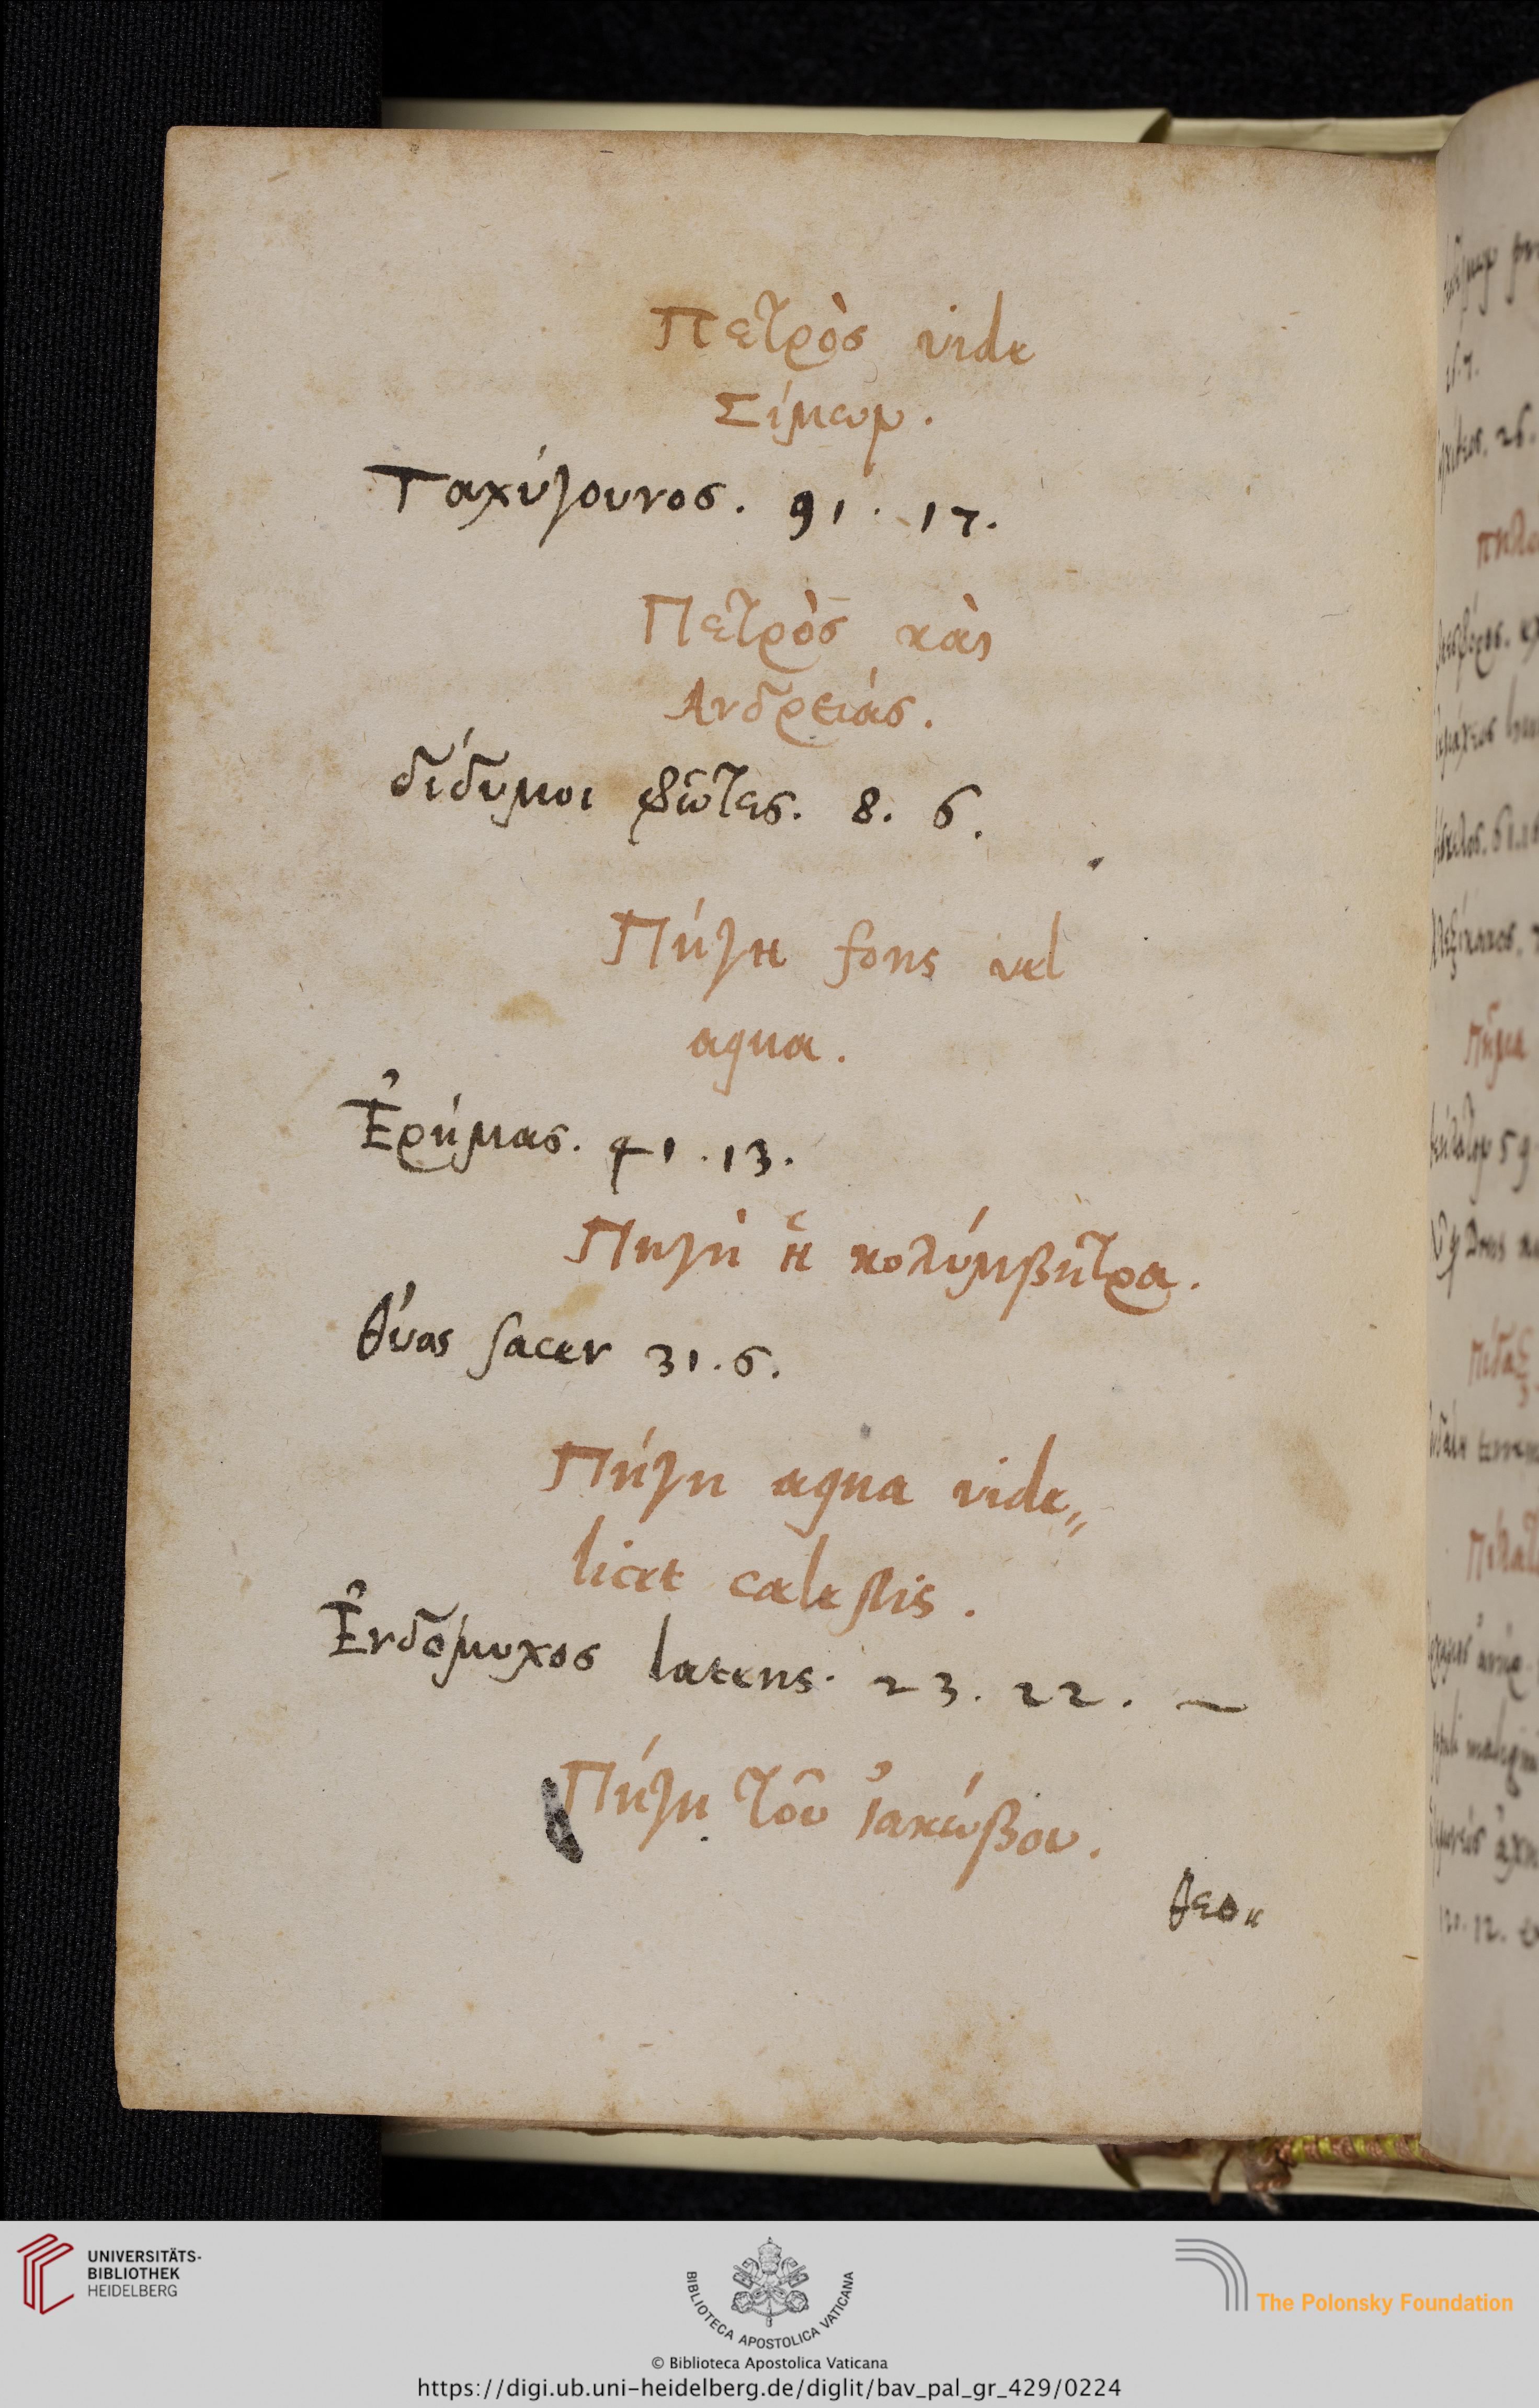 Πετρὸς vide
Σίμων.
Ταχύγουνος. 91. 17.
Πετρὸς καὶ
Ανδρειάς.
δίδυμοι φῶτες. 8. 6.
Πήγη fons vel
aqua.
Ἐρήμας. 41. 13.
Πηγὴ ἡ κολύμβητρα.
θύας sacer 31. 6.
Πήγη aqua vide„
licet calestis.
Ἐνδόμυχος latens. 23. 22. ~
Πήγη τοῦ ἰακώβου.
θεο„
UNIVERSITÄTS-
BIBLIOTHEK
HEIDELBERG
BIBLIOTECA APOSTOLICA VATICANA
The Polonsky Foundation
© Biblioteca Apostolica Vaticana
https://digi.ub.uni-heidelberg.de/diglit/bav_pal_gr_429/0224